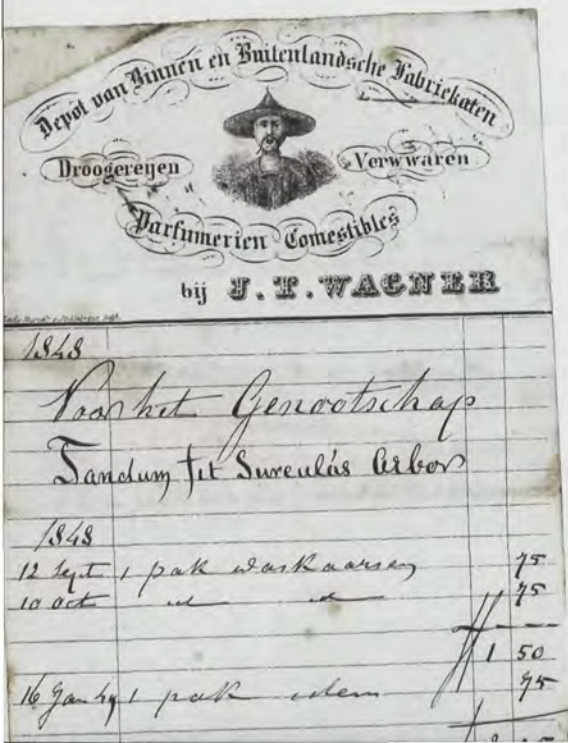 Depot van Binnen en Buitenlandsche Fabriekaten
Droogereyen Verwwaren
Parfumerien Comestibles
bij J. T. WAGNER
1848
Voor het Genootschap
Tandum fit Surculus Arbor
1848
12 Sept 1 pak waskaarsen 75
10 Oct 75
1 50
16 Jan 49 1 pak idem 75